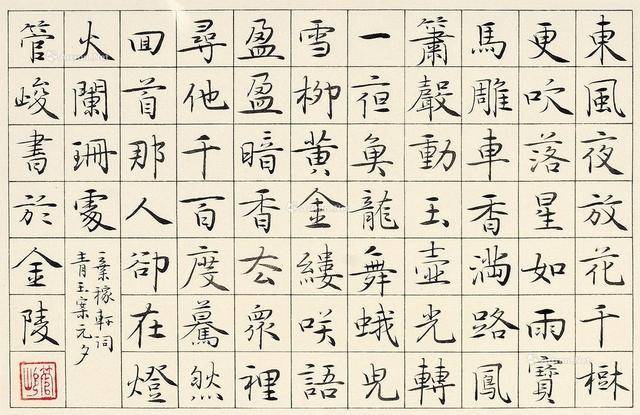 東風夜放花千樹
更吹落星如雨寶
馬雕車香滿路鳳
簫聲動玉壺光轉
一夜魚龍舞蛾兒
雪柳黃金縷咲語
盈盈暗香去衆裡
尋他千百度驀然
回首那人卻在燈
火闌珊處
稼軒詞
青玉案元夕
管峻書於金陵